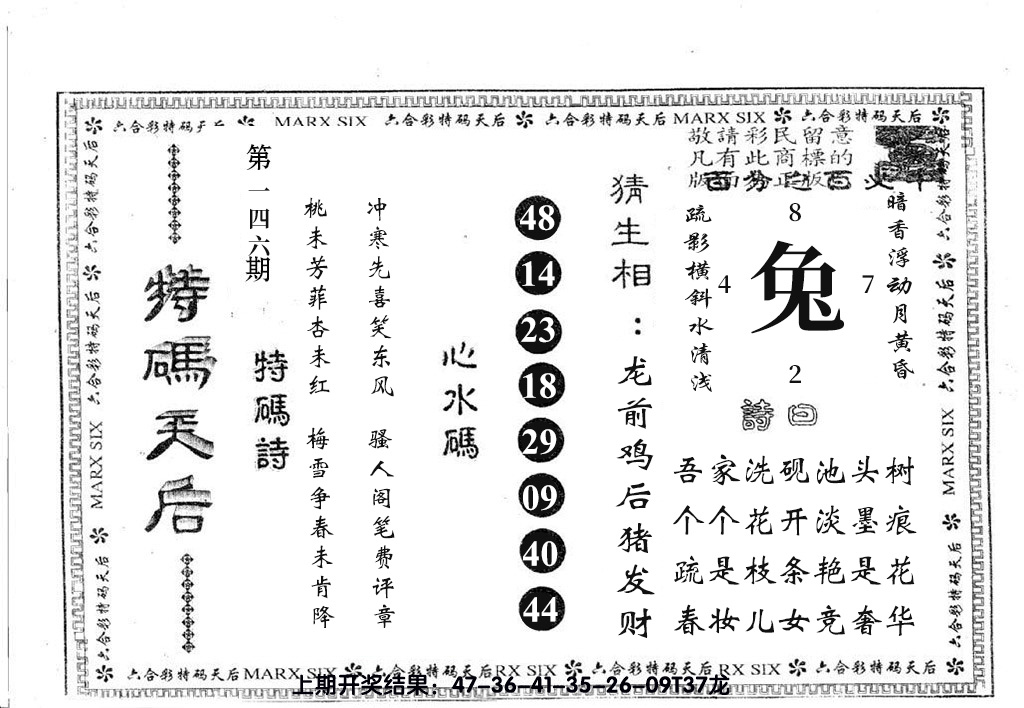 六合彩特码天后 MARX SIX 六合彩特码天后 六合彩特码天后 MARX SIX 六合彩特码天后
敬請彩民留意
凡有此商標的
版面为正版
特碼天后
第一四六期
特碼詩
冲寒先喜笑东风 骚人阁笔费评章
桃未芳菲杏未红 梅雪争春未肯降
心水碼
48
14
23
18
29
09
40
44
猜生相：龙前鸡后猪发财
疏影横斜水清浅
暗香浮动月黄昏
8
4
兔
7
2
詩曰
吾家洗砚池头树
个个花开淡墨痕
疏是枝条艳是花
春妆儿女竞奢华
六合彩特码天后
MARX SIX
六合彩特码天后
六合彩特码天后
六合彩特码天后
六合彩特码天后
MARX SIX
六合彩特码天后
六合彩特码天后 MARX SIX 六合彩特码天后 RX SIX 六合彩特码天后 RX SIX 六合彩特码天后
上期开奖结果：47-36-41-35-26-09T37龙